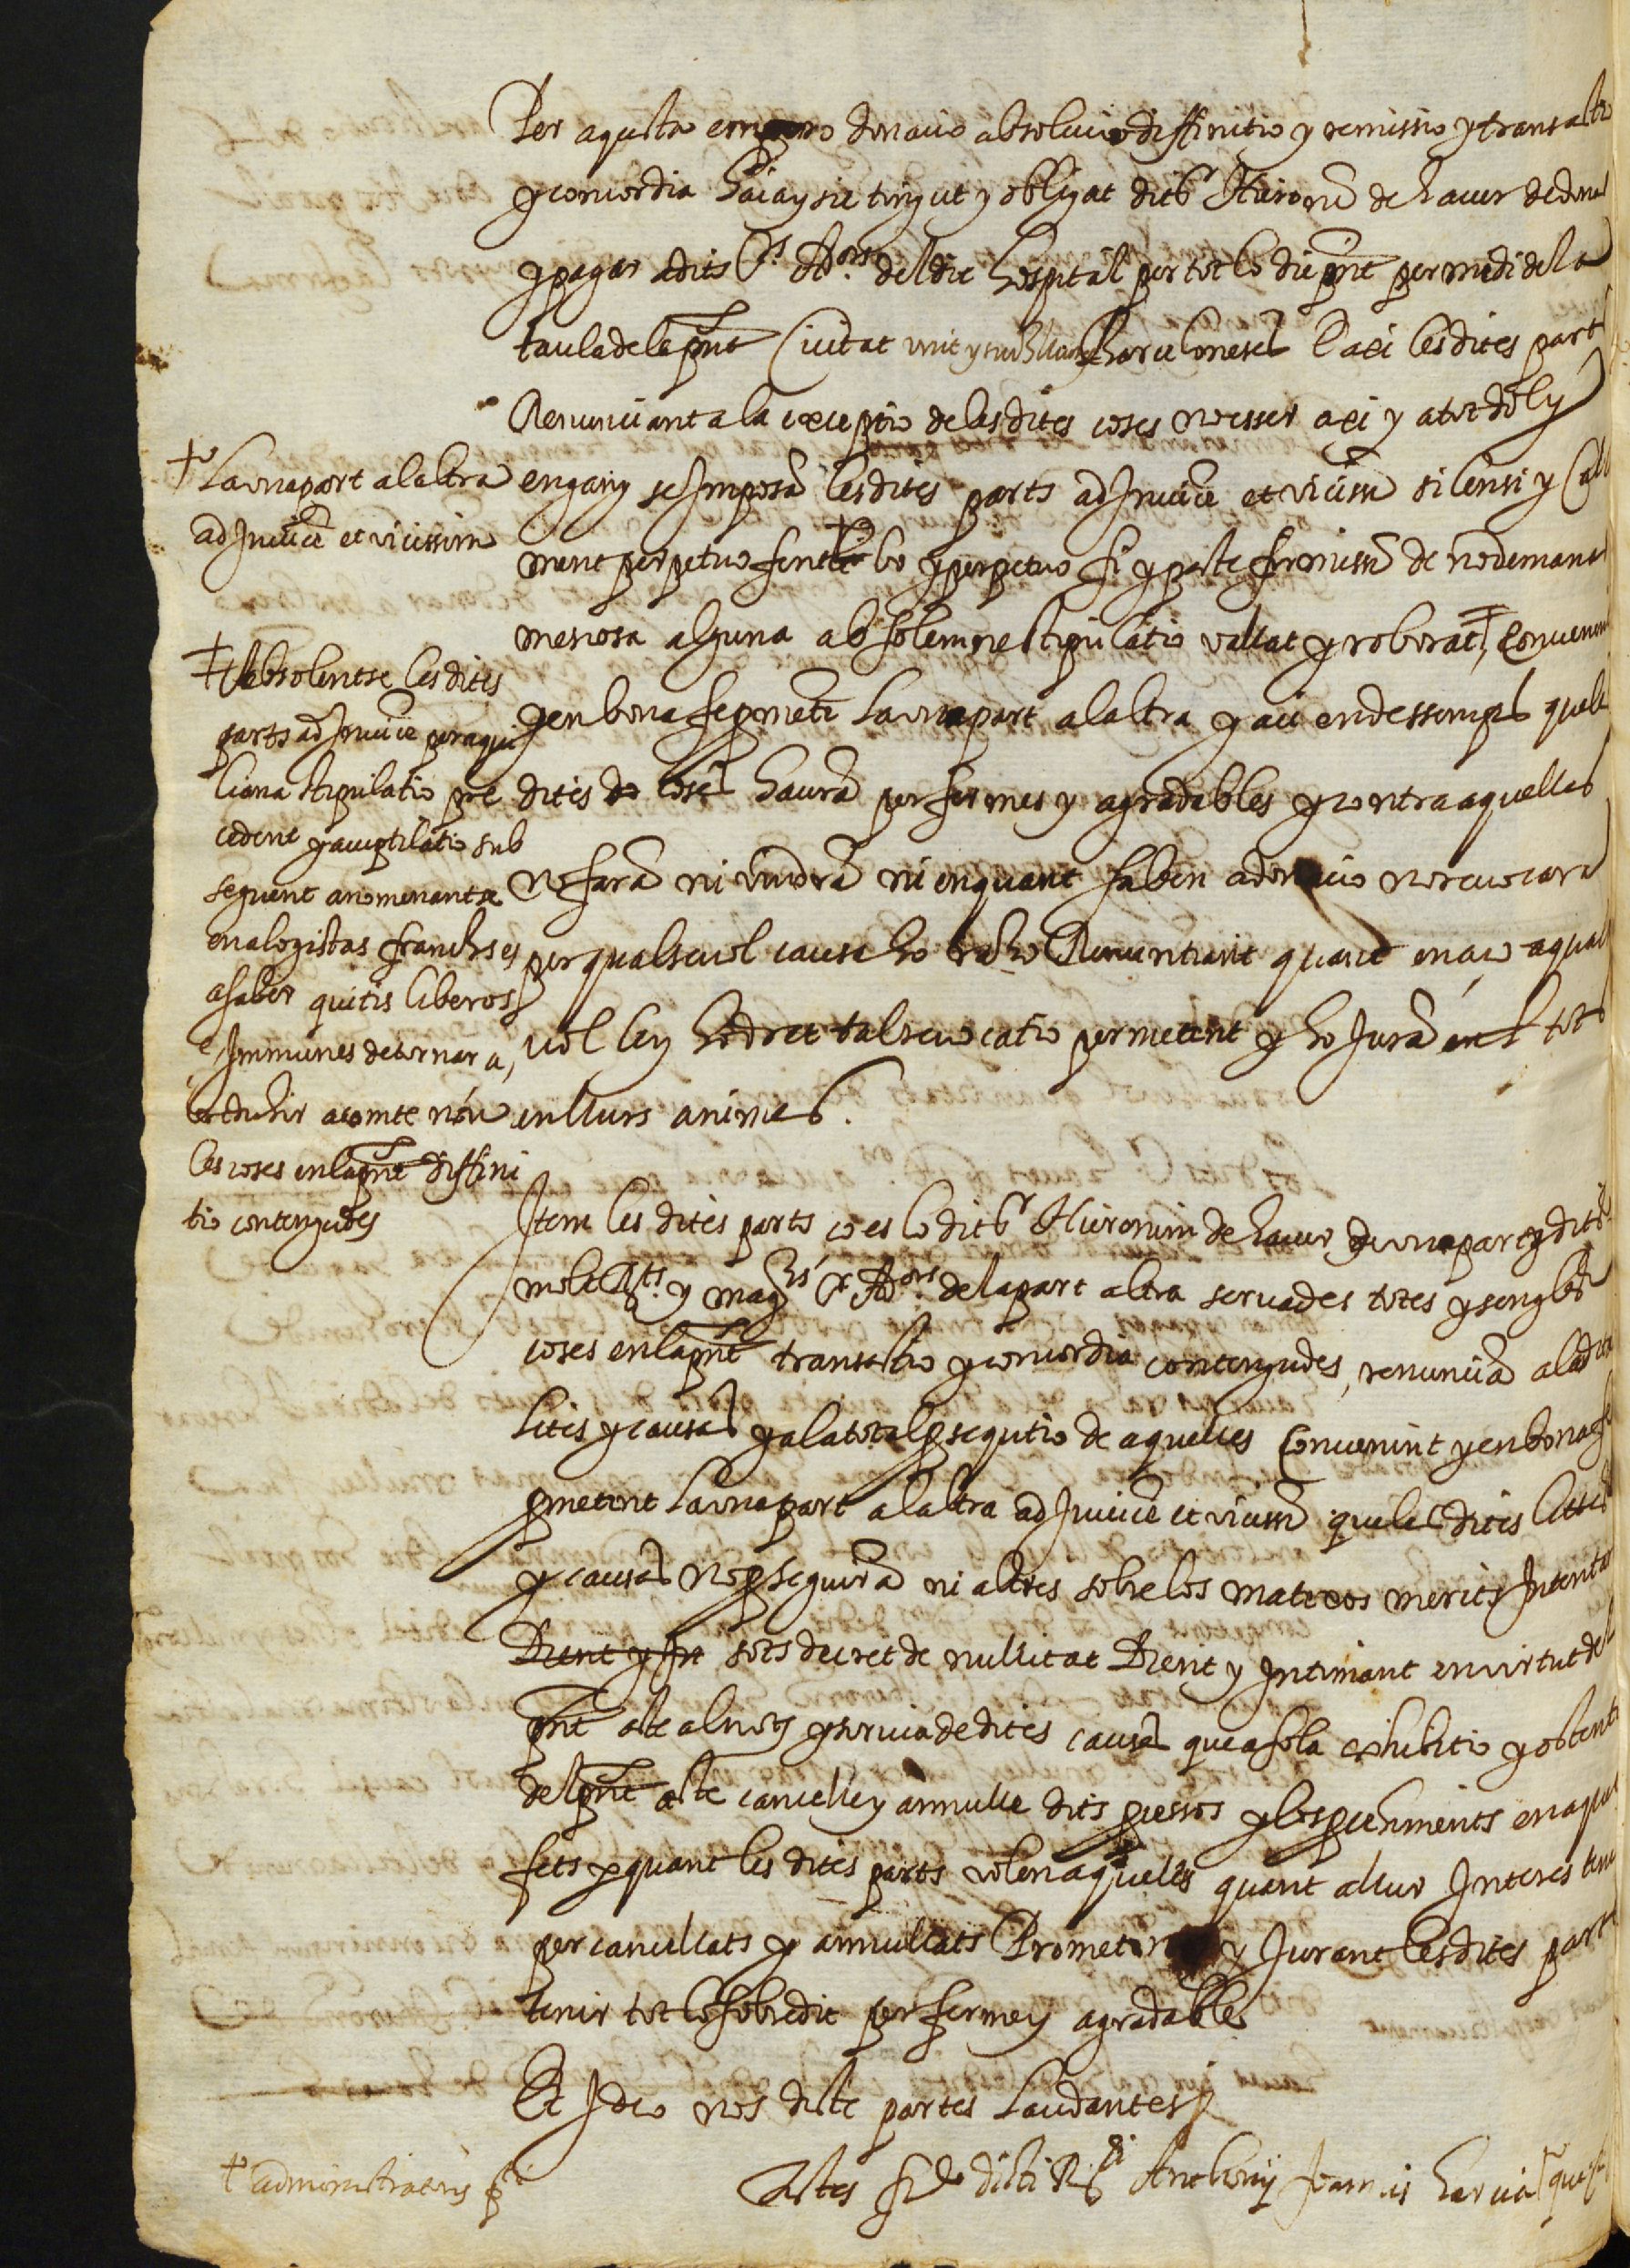 Per aquesta empero donacio absolucio diffinitio y remissio y transactio
y concordia haia y sie tingut y obligat dit Sr Hieronim de haver de donar
y pagar a dits Srs Adors. del dit hospital per tot lo die pnt per medi de la
taula de la pnt Ciutat vuit y sinch lliures barceloneses E axi les dites parts
Renunciant a la exceptio de les dites coses no esser axi y a tot dol y
engany se Imposan les dites parts ad Invice et vicissi silensi y Calla
ment perpetuo fent lo y perpetuo fi y pacte fermissi de no demanar
mes cosa alguna ab solemne stipulatio vallat y roborat, Convenint
y en bona fe pmeten la una part a la altra y axi endessemps que les
dites coses hauran per fermes y agradables y contra aquelles
no faran ni vindran ni en quant saben a donacio no revocaran
per qualsevol causa ho raho Renuntiant quant en aço a qualse
vol ley ho dret tal revocatio permetent y ho Juran tots
en llurs animes.
Item les dites parts ço es lo dit Sr Hieronim de haver de una part y dits
molt Rts. y magchs Srs Adors. de la part altra servades totes y sengles
coses en la pnt transactio y concordia contengudes, renuncian a la dita
Litis y causas y a la total psequtio de aquelles Convenint y en bona fe
pmetent la una part a la altra ad Invice et vicissi que les dites Lites
y causas no pseguiran ni altres sobre los matexos merits Intentar
Dient y Int sots decret de nullitat Dient y Intimant en virtut del
pnt acte al noty y scriva de dites causas que a sola exhibitio y obtent
del pnt acte cancelle y annulle dits pcessos y los pcehiments en aquells
fets y quant les dites parts volen aquells quant a llur Interes tenir
per cancellats y annullats Prometent y Jurant les dites parts
tenir tot lo sobredit per ferme y agradable
Et Ideo nos dicte partes Laudantes
Testes fr dicti Rdi Anthonij Joannis Garcia
+ La una part a la altra
ad Invice et vicissim
‡ Absolentse les dites
parts ad Invice per aqui
liana stipulatio pre
cedent y acceptilatio sub
seguent anomenantse
en alogistas franchs es
a saber quitis liberos
e Immunes de tornar a,
deduhir a comte nou
les coses en la pnt diffini
tio contengudes
+ administrators p